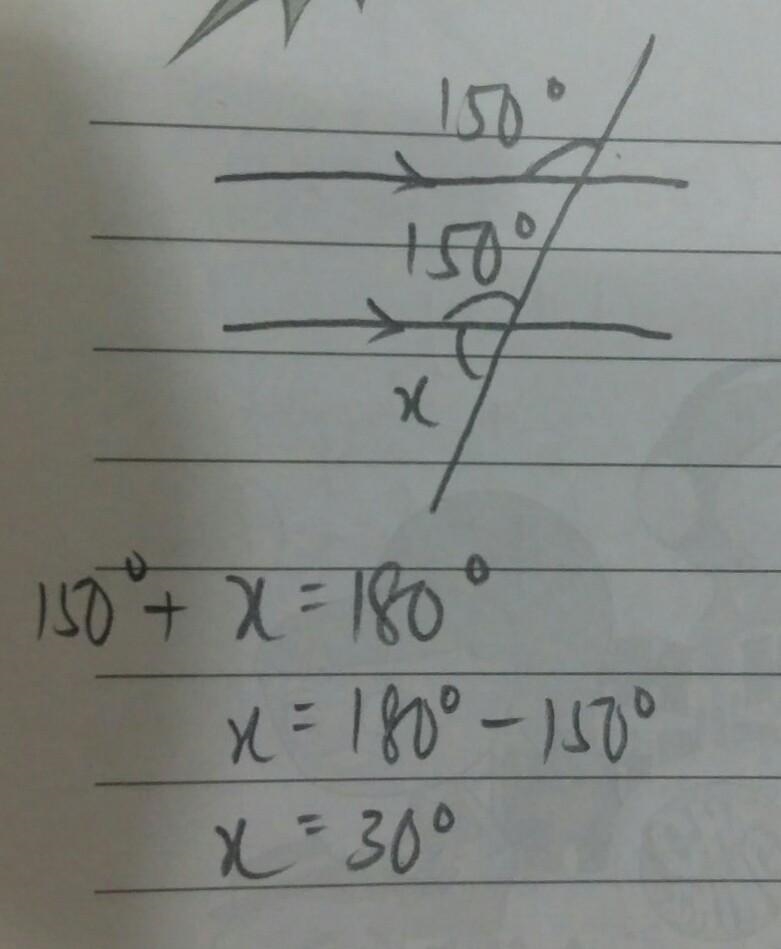 150°
150°
x
150° + x = 180°
x = 180° - 150°
x = 30°